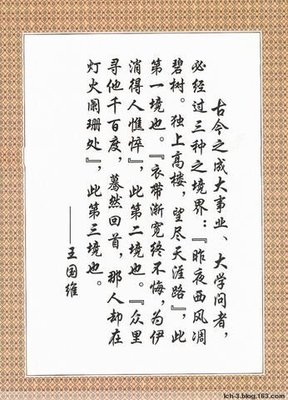 古今之成大事业、大学问者，
必经过三种之境界：『昨夜西风凋
碧树。独上高楼，望尽天涯路』，此
第一境也。『衣带渐宽终不悔，为伊
消得人憔悴』，此第二境也。『众里
寻他千百度，蓦然回首，那人却在
灯火阑珊处』，此第三境也。
——王国维
lch-3.blog.163.com